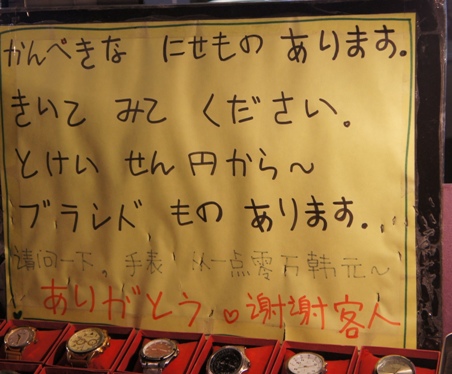 かんぺきな にせもの あります。
きいて みて ください。
とけい せん円から~
ブランド もの あります。
请问一下。手表 从一点零万韩元~
ありがとう ♡谢谢客人